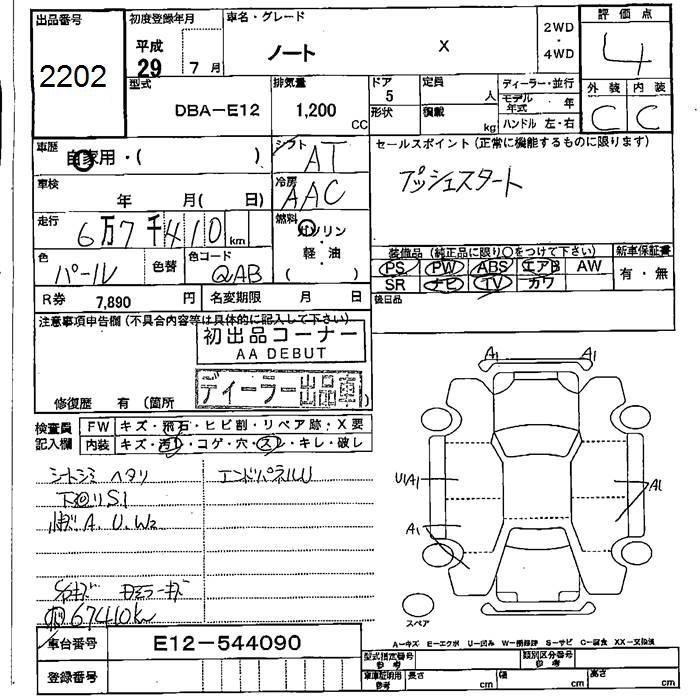 出品番号
2202
初度登録年月
平成
29 7 月
車名・グレード
ノート X
2WD
・
4WD
評価点
4
外装 内装
C C
型式
DBA-E12
排気量
1,200
CC
ドア
5
形状
定員
人
積載
kg
ディーラー・並行
モデル年式 年
ハンドル 左・右
車歴
自家用・( )
シフト
AT
セールスポイント(正常に機能するものに限ります)
プッシュスタート
車検
年 月( 日)
冷房
AAC
走行
6万7千410km
燃料
ガソリン
・
軽・油
( )
色
パール
色替
色コード
QAB
装備品(純正品に限り○をつけて下さい)
新車保証書
PS PW ABS エアB AW
有・無
SR ナビ TV カワ
R券 7,890 円
名変期限 月 日
後日品
注意事項申告欄(不具合内容等は具体的に記入して下さい)
初出品コーナー
AA DEBUT
ディーラー出品車
修復歴 有(箇所 )
検査員
記入欄
FW キズ・飛石・ヒビ割・リペア跡・X要
内装 キズ・汚レ・コゲ・穴・スレ・キレ・破レ
シートシミ ヘタリ
エンドパネルU
下廻りS1
A. U. W2
67410k
A1 A1
U1A1
A1
A1
スペア
車台番号 E12-544090
登録番号
A-キズ E-エクボ U-凹み W-補修跡 S-サビ C-腐食 XX-交換済
型式指定番号
参考
類別区分番号
参考
車庫証明用
参考
長さ cm
幅 cm
高さ cm